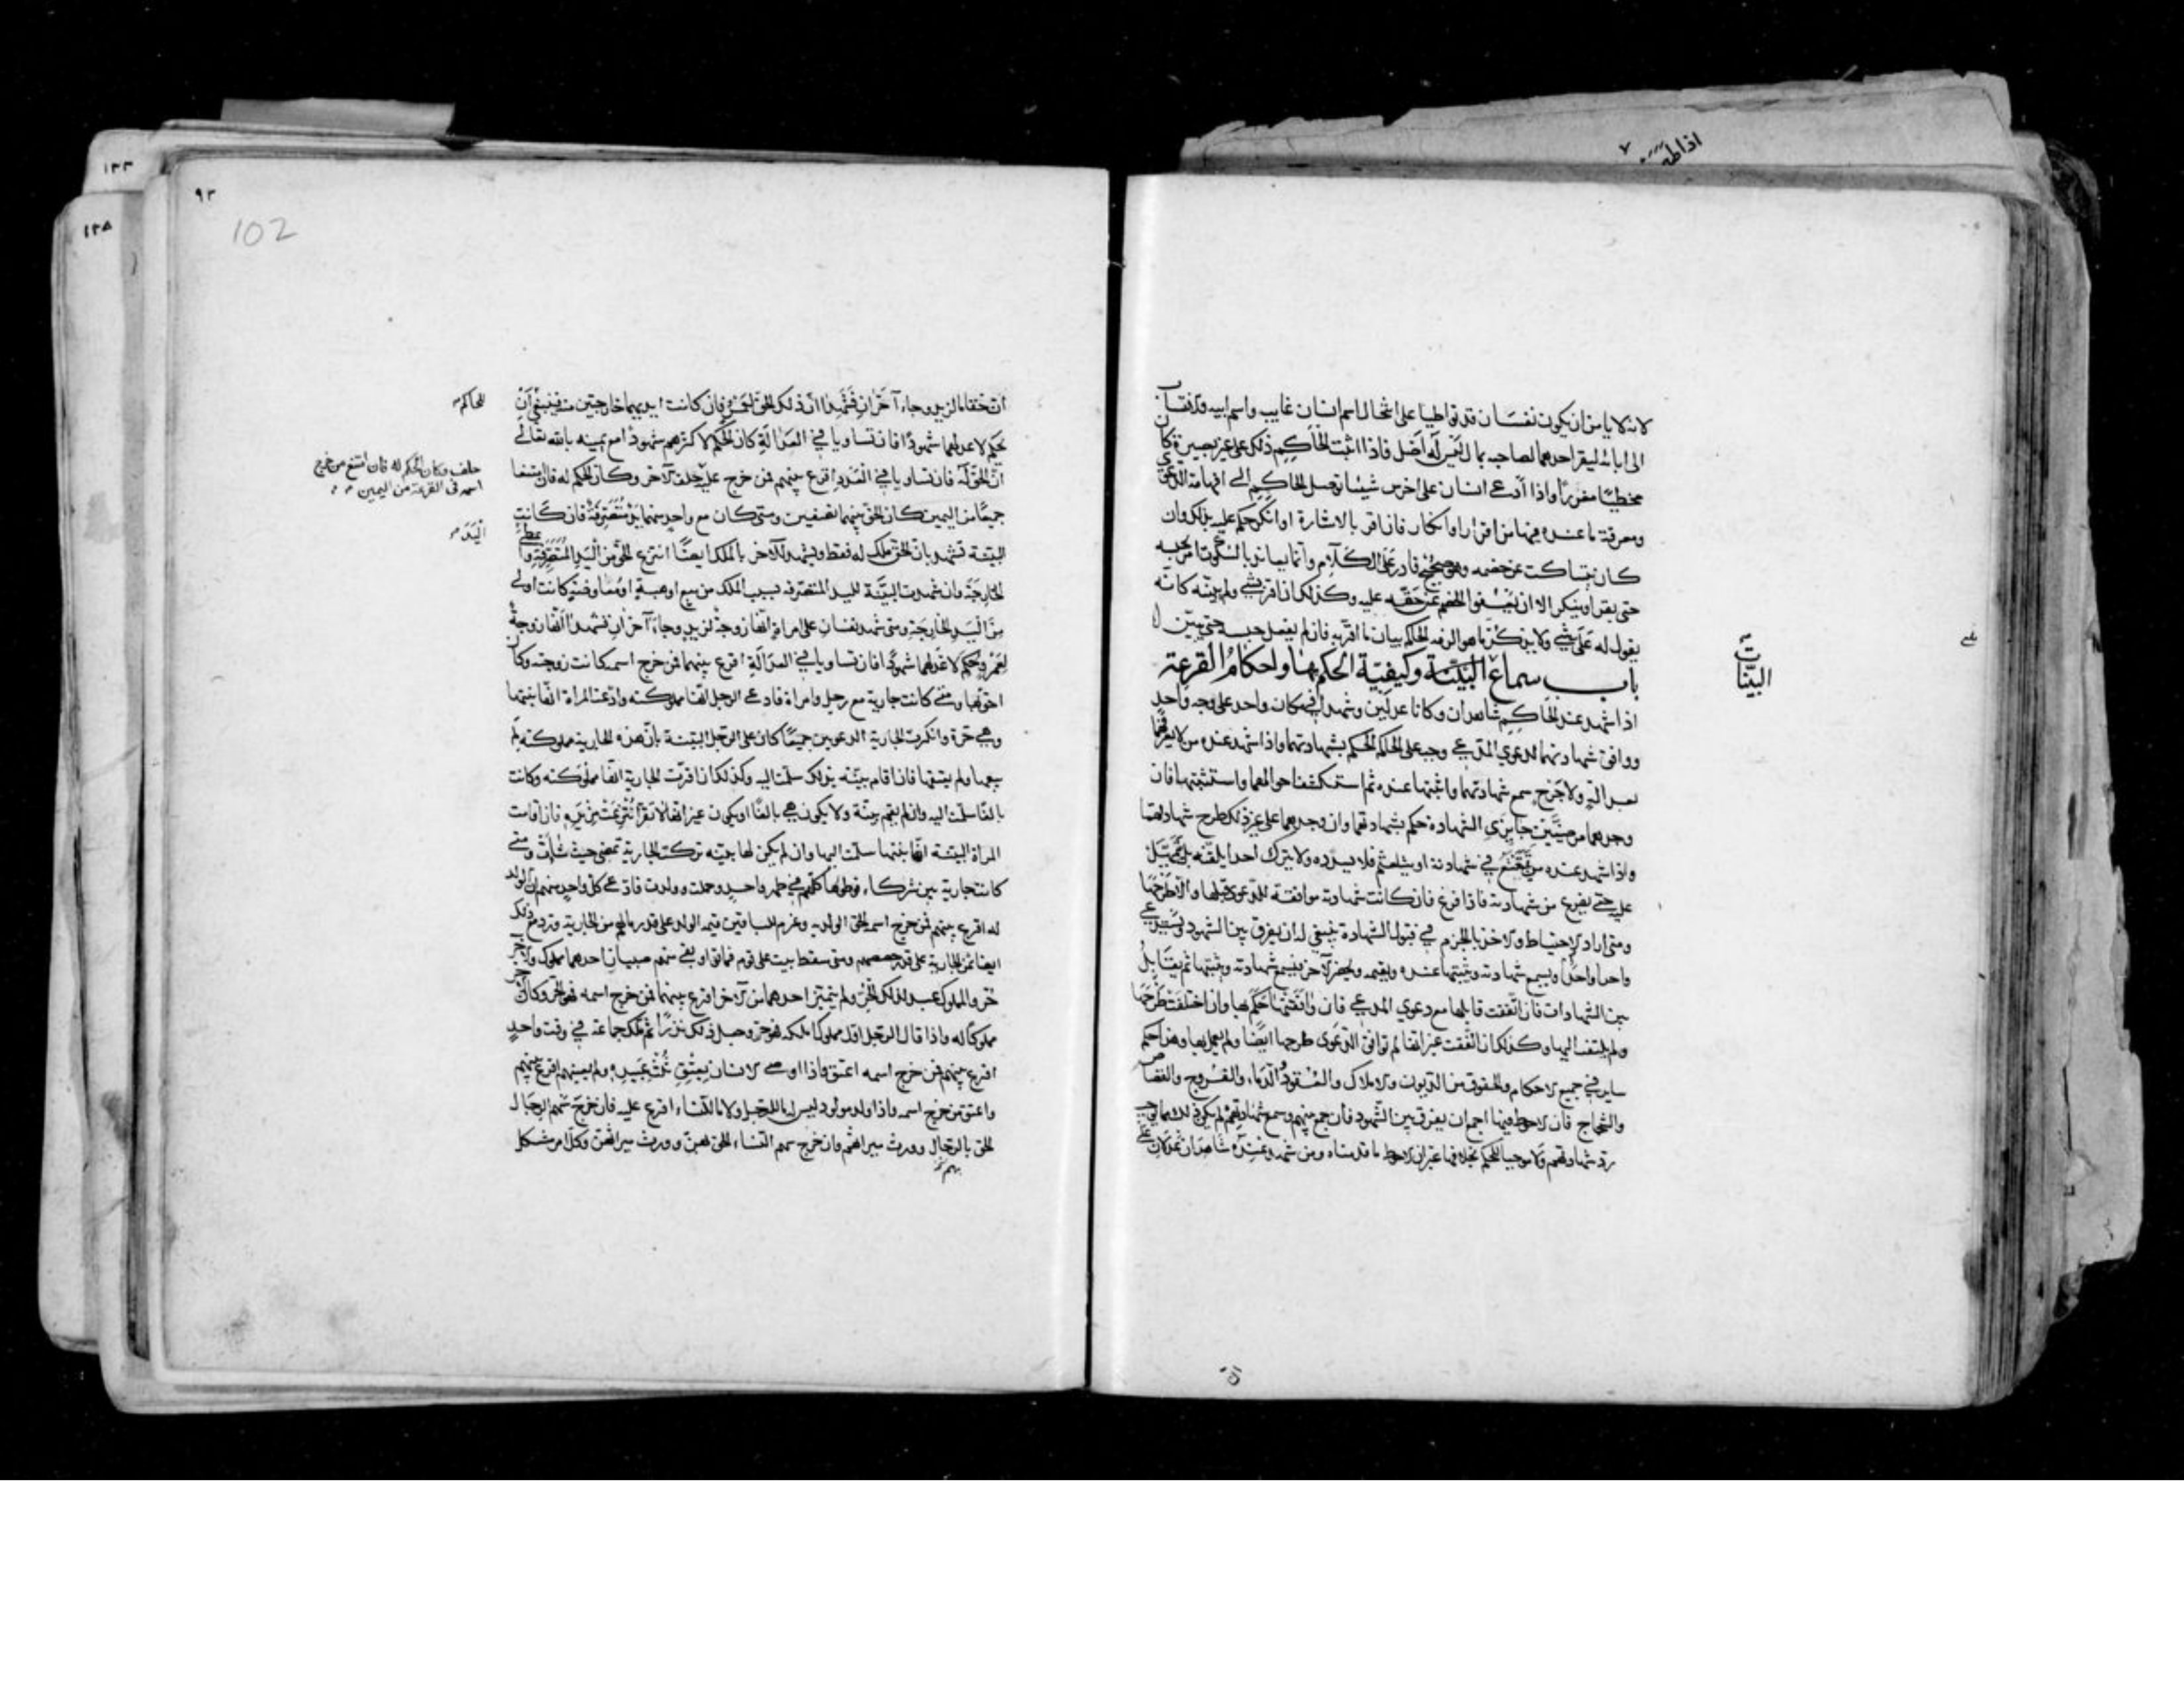 لانه لا يامن ان يكون نفسان قد تواطيا على انتحال اسم انسان غايب واسم ابيه والانتساب
الى ابائه ليقر احدهما لصاحبه بما ليس له اصل فاذا اثبت الحاكم ذلك على غير بصيرة كان
مخطيا مغررا واذا ادعى انسان على اخرس شيئا توصل الحاكم الى افهامه الدعوى
ومعرفة ما عنده فيها من اقرار او انكار فان اقر بالاشارة او انكر حكم عليه بذلك وان
كان يتساكت عن خصمه وهو صحيح قادر على الكلام وانما يعاند بالسكوت امر بحبسه
حتى يقر او ينكر الا ان يعفو الخصم عن حقه عليه وكذلك ان اقر بشي ولم يبينه كانه
يقول له علي شي ولا يذكر ما هو الزمه الحاكم بيان ما اقر به فان لم يفعل حبسه حتى يبين
باب سماع البينة وكيفية الحكم بها واحكام القرعة
البينات
اذا شهد عند الحاكم شاهدان وكانا عدلين وشهدا في مكان واحد على وجه واحد
ووافق شهادتهما لدعوي المدعي وجب على الحاكم الحكم بشهادتهما واذا شهد عنده من لا يعرفهما
بعدالة ولا جرح سمع شهادتهما واثبتها عنده ثم استكشف احوالهما واستثبتها فان
وجدهما مرضيين جايزي الشهاده حكم بشهادتهما وان وجدهما على غير ذلك طرح شهادتهما
واذا شهد عنده من يتعتع في شهادته او يتلعثم فلا يسدده ولا يترك احدا يلقنه بل يتمهل
عليه حتى يفرغ من شهادته فاذا فرغ فان كانت شهادته موافقة للدعوى قبلها والا طرحها
ومتى اراد الاحتياط والاخذ بالجزم في قبول الشهادة ينبغي له ان يفرق بين الشهود ويستدعي
واحدا واحدا ويسمع شهادته ويثبتها عنده ويقيمه ويحضر الاخر فيسمع شهادته ويثبتها ثم يقابل
بين الشهادات فان اتفقت قابلها مع دعوي المدعي فان وافقتها حكم بها وان اختلفت طرحها
ولم يلتفت اليها وكذلك ان اتفقت غير انها لم توافق الدعوى طرحها ايضا ولم يعمل بها وهذا حكم
ساير في جميع الاحكام والحقوق من الديون والاملاك والعقود والدماء والفروج والقصاص
والشجاج فان الاحوط فيها اجمع ان يفرق بين الشهود فان جمع بينهم وسمع شهادتهم لم يكن ذلك مما يوجب
رد شهادتهم ولا موجبا للحكم بخلافها غير ان الاحوط ما قدمناه ومن شهد عنده شاهدان عدلان على
٩٢
102
١٢٥
ان حقا ما لزيد وجاء آخران فشهدا ان ذلك الحق لعمرو فان كانت ايديهما خارجتين منه فينبغي ان
يحكم لاعدلهما شهودا فان تساويا في العدالة كان الحكم لاكثرهم شهودا مع يمينه بالله تعالى
ان الحق له فان تساويا في العدد اقرع بينهم فمن خرج عليه حلف الاخر وكان الحكم له فان امتنعا
جميعا من اليمين كان الحق بينهما نصفين ومتى كان مع واحد منهما يد متصرفة فان كانت
البينة تشهد بان الحق ملك له فقط وتشهد للآخر بالملك ايضا انتزع الحق من اليد المتصرفة واعطي
الخارجة وان شهدت البينة لليد المتصرفه بسبب الملك من بيع او هبة او معاوضة كانت اولى
من اليد الخارجة ومتى شهد نفسان على امراة انها زوجة لزيد وجاء آخران فشهدا انها زوجة
لعمرو حكم لاعدلهما شهودا فان تساويا في العدالة اقرع بينهما فمن خرج اسمه كانت زوجته وكان
احق بها ومتى كانت جارية مع رجل وامراة فادعى الرجل انها مملوكته وادعت المراة انها ابنتها
وهي حرة وانكرت الجارية الدعويين جميعا كان على الرجل البينة بان هذه الجارية مملوكته لم
يبعها ولم يعتقها فان اقام بينة بذلك سلمت اليه وكذلك ان اقرت الجارية انها مملوكته وكانت
بالغا سلمت اليه وان لم يقم بينة ولا يكون هي بالغا او يكون غير انها لا تقر انتزعت من يده فان اقامت
المراة البينة انها ابنتها سلمت اليها وان لم يكن لها بينه تركت الجارية تمضي حيث شاءت ومتى
كانت جارية بين شركاء فوطوها كلهم في طهر واحد وحملت وولدت فادعى كل واحد منهم ان الولد
له اقرع بينهم فمن خرج اسمه الحق الولد به وغرم للباقين قيمة الولد على قدر مالهم من الجارية ورد مع ذلك
ايضا ثمن الجارية على قدر حصصهم ومتى سقط بيت على قوم فماتوا وبقي منهم صبيان احدهما مملوك والاخر
حر والمملوك عبد لذلك الحر ولم يتميز احدهما من الاخر اقرع بينهما فمن خرج اسمه فهو الحر وكان الاخر
مملوكا له واذا قال الرجل اول مملوك املكه فهو حر وجعل ذلك نذرا ثم ملك جماعة في وقت واحد
اقرع بينهم فمن خرج اسمه اعتق واذا اوصى الانسان بعتق ثلث عبيده ولم يعينهم اقرع بينهم
واعتق من خرج اسمه واذا ولد مولود ليس له ما للرجل ولا ما للنساء اقرع عليه فان خرج سهم الرجال
الحق بالرجال وورث ميراثهم وان خرج سهم النساء الحق بهن وورث ميراثهن وكل امر مشكل
للحاكم
حلف وكان الحكم له فان امتنع من خرج
اسمه في القرعة من اليمين
اليد